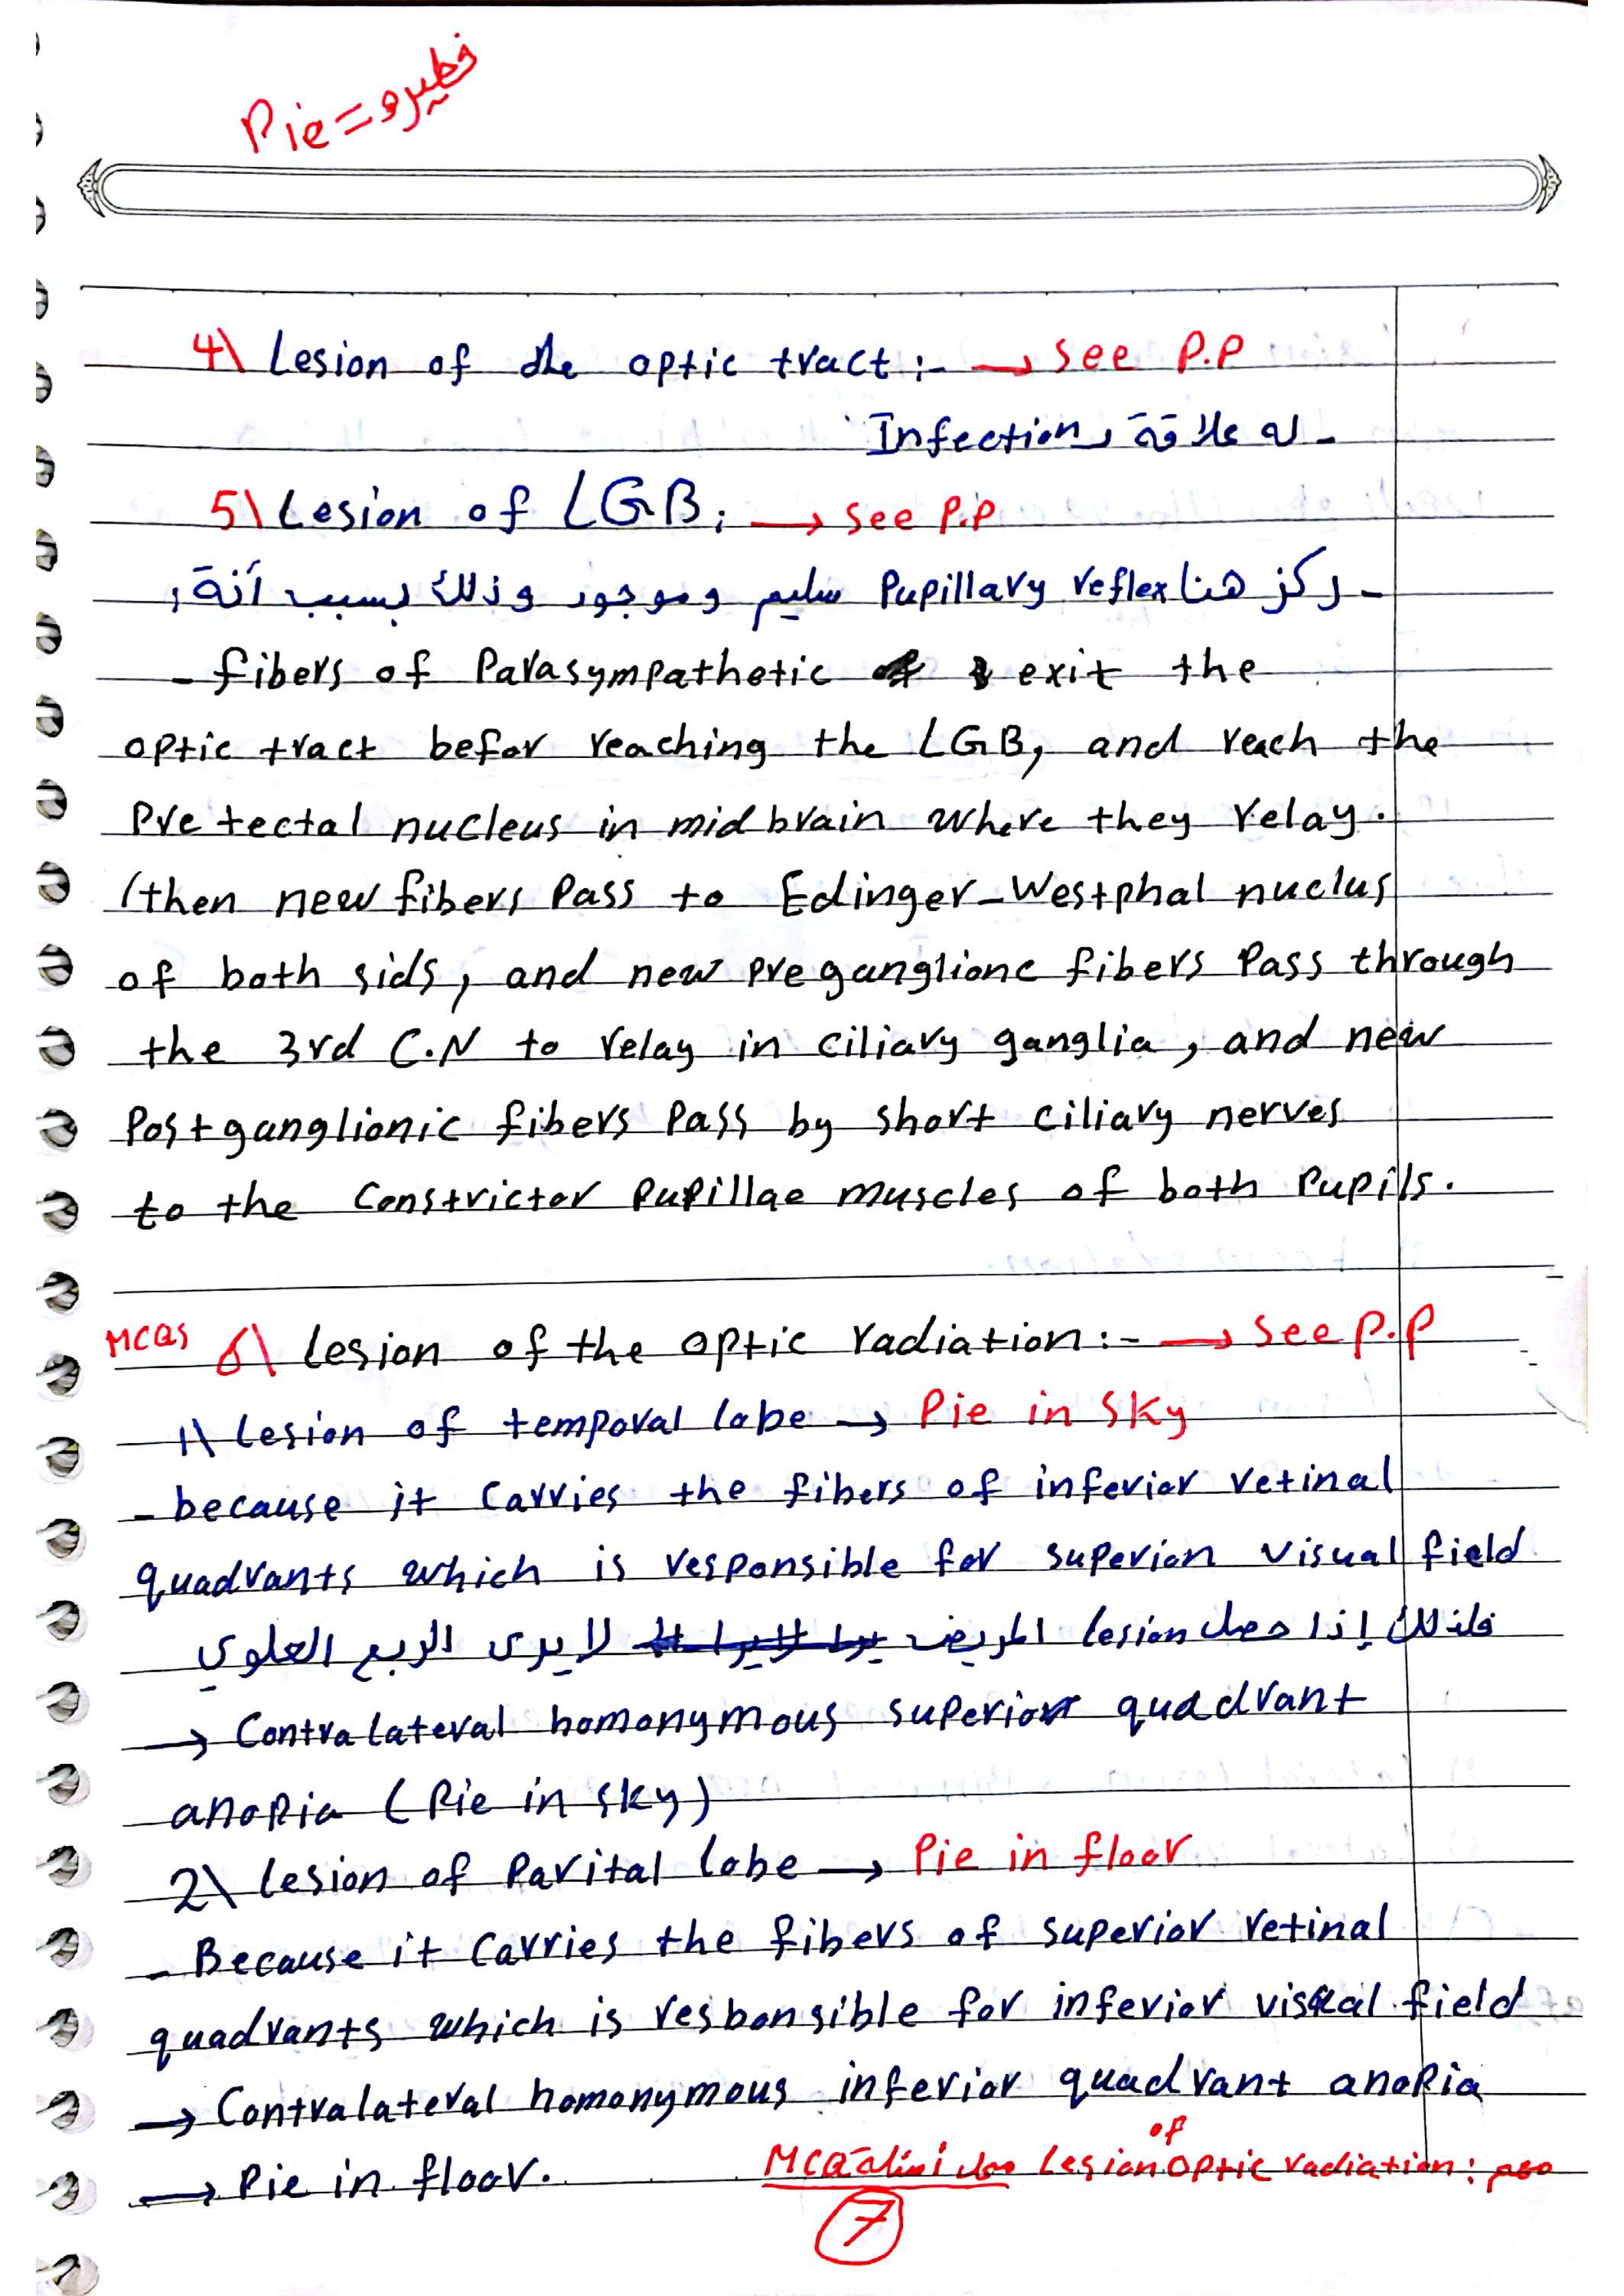 Pie = فطيره
4\ Lesion of the optic tract :- → see P.P
- له علاقة بـ Infection
5\ Lesion of LGB: → see P.P
- ركز هنا Pupillary reflex سليم وموجود وذلك بسبب أنة:
- fibers of Parasympathetic exit the
optic tract befor reaching the LGB, and reach the
Pretectal nucleus in midbrain where they relay.
(then new fibers Pass to Edinger-Westphal nuclus
of both sids, and new preganglionc fibers Pass through
the 3rd C.N to relay in ciliary ganglia, and new
Postganglionic fibers Pass by short ciliary nerves
to the Constrictor Pupillae muscles of both Pupils.
MCQs 6\ Lesion of the optic radiation:- → see P.P
1\ Lesion of temporal lobe → Pie in Sky
- because it Carries the fibers of inferior retinal
quadrants which is responsible for superior visual field
فلذلك إذا حصل lesion المريض لا يرى الربع العلوي
→ Contralateral homonymous superior quadrant
anopia (Pie in sky)
2\ Lesion of Parital lobe → Pie in floor
- Because it Carries the fibers of superior retinal
quadrants which is resbonsible for inferior visual field
→ Contralateral homonymous inferior quadrant anopia
→ Pie in floor.
مهم : Lesion of optic radiation MCQ
7